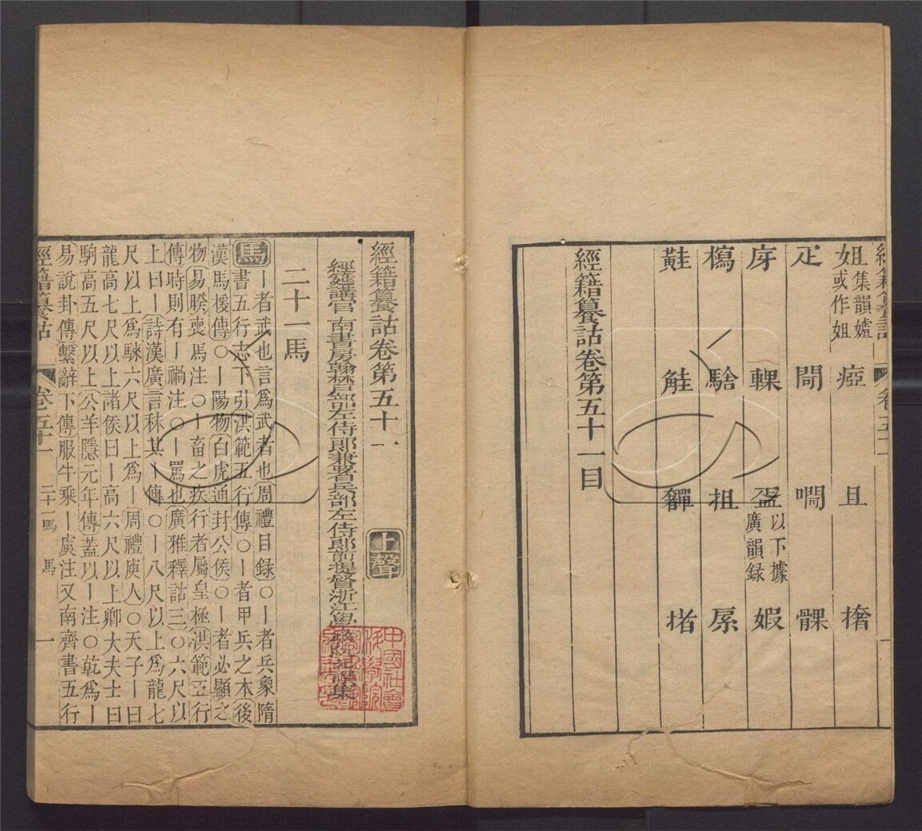 經籍籑詁 卷五十一
姐集韻㜘或作姐 瘂 且 撦
疋 閜 㗇 髁
庌 輠 㿿以下據廣韻錄 婽
㯊 䮢 抯 厏
鞋 觟 奲 撦
經籍籑詁卷第五十一目
經籍籑詁卷第五十一 上聲
經筵講官南書房翰林戶部左侍郎兼署兵部左侍郎前提督浙江學政阮元譔集
二十一馬
馬丨者武也言爲武者也周禮目録〇丨者兵象隋
書五行志下引洪範五行傳〇丨者甲兵之本後
漢馬援傳〇丨陽物白虎通封公侯〇丨者必顯之
物易睽喪馬注〇丨畜之疾行者屬皇極洪範五行
傳時則有丨禍注〇丨罵也廣雅釋詁三〇六尺以
上曰丨詩漢廣言秣其丨傳〇丨八尺以上爲龍七
尺以上爲騋六尺以上爲丨周禮庾人〇天子丨曰
龍高七尺以上諸侯曰丨高六尺以上卿大夫士曰
駒高五尺以上公羊隱元年傳蓋以丨注〇乾爲丨
易說卦傳繫辭下傳服牛乘丨虞注又南齊書五行
經籍籑詁 卷五十一 二十一馬 馬 一